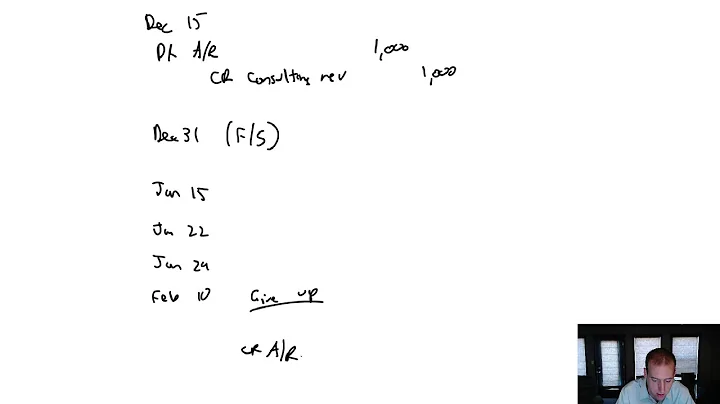 Dec 15
Dr A/R 1,000
CR Consulting rev 1,000
Dec 31 (F/S)
Jan 15
Jan 22
Jan 29
Feb 10 Give up
CR A/R.